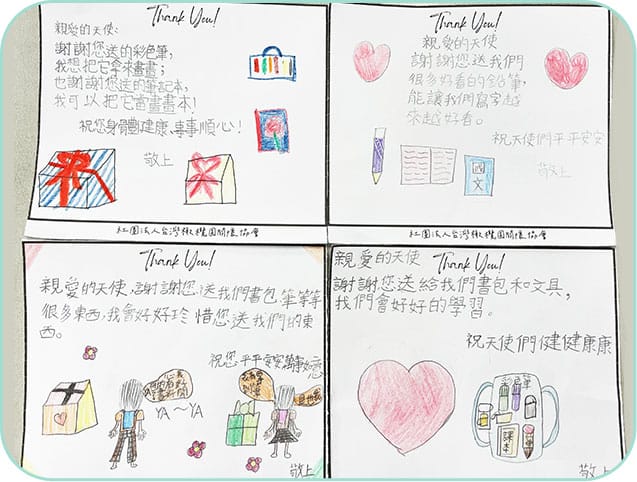 Thank You!
親愛的天使:
謝謝您送的彩色筆,
我想把它拿來畫畫;
也謝謝您送的筆記本,
我可以把它當畫畫本!
祝您身體健康、萬事順心!
敬上
社團法人台灣橄欖園關懷協會
Thank You!
親愛的天使
謝謝您送我們
很多好看的鉛筆,
能讓我們寫字越
來越好看。
祝天使們平平安安
敬上
國文
社團法人台灣橄欖園關懷協會
Thank You!
親愛的天使,謝謝您送我們書包筆等等
很多東西,我會好好珍惜您送我們的東
西。
祝您平平安安萬事如意
YA～YA
敬上
Thank You!
親愛的天使
謝謝您送給我們書包和文具,
我們會好好的學習。
祝天使們健健康康
彩色筆
課本
敬上